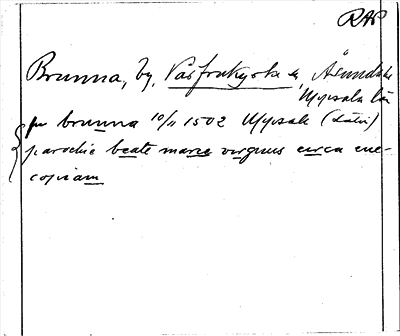 RAP
Brunna, by, Vårfrukyrka sn, Åsunda hd
Uppsala län
in brunna 10/11 1502 Uppsala (Latin)
parochie beate marie virginis circa ene-
copiam